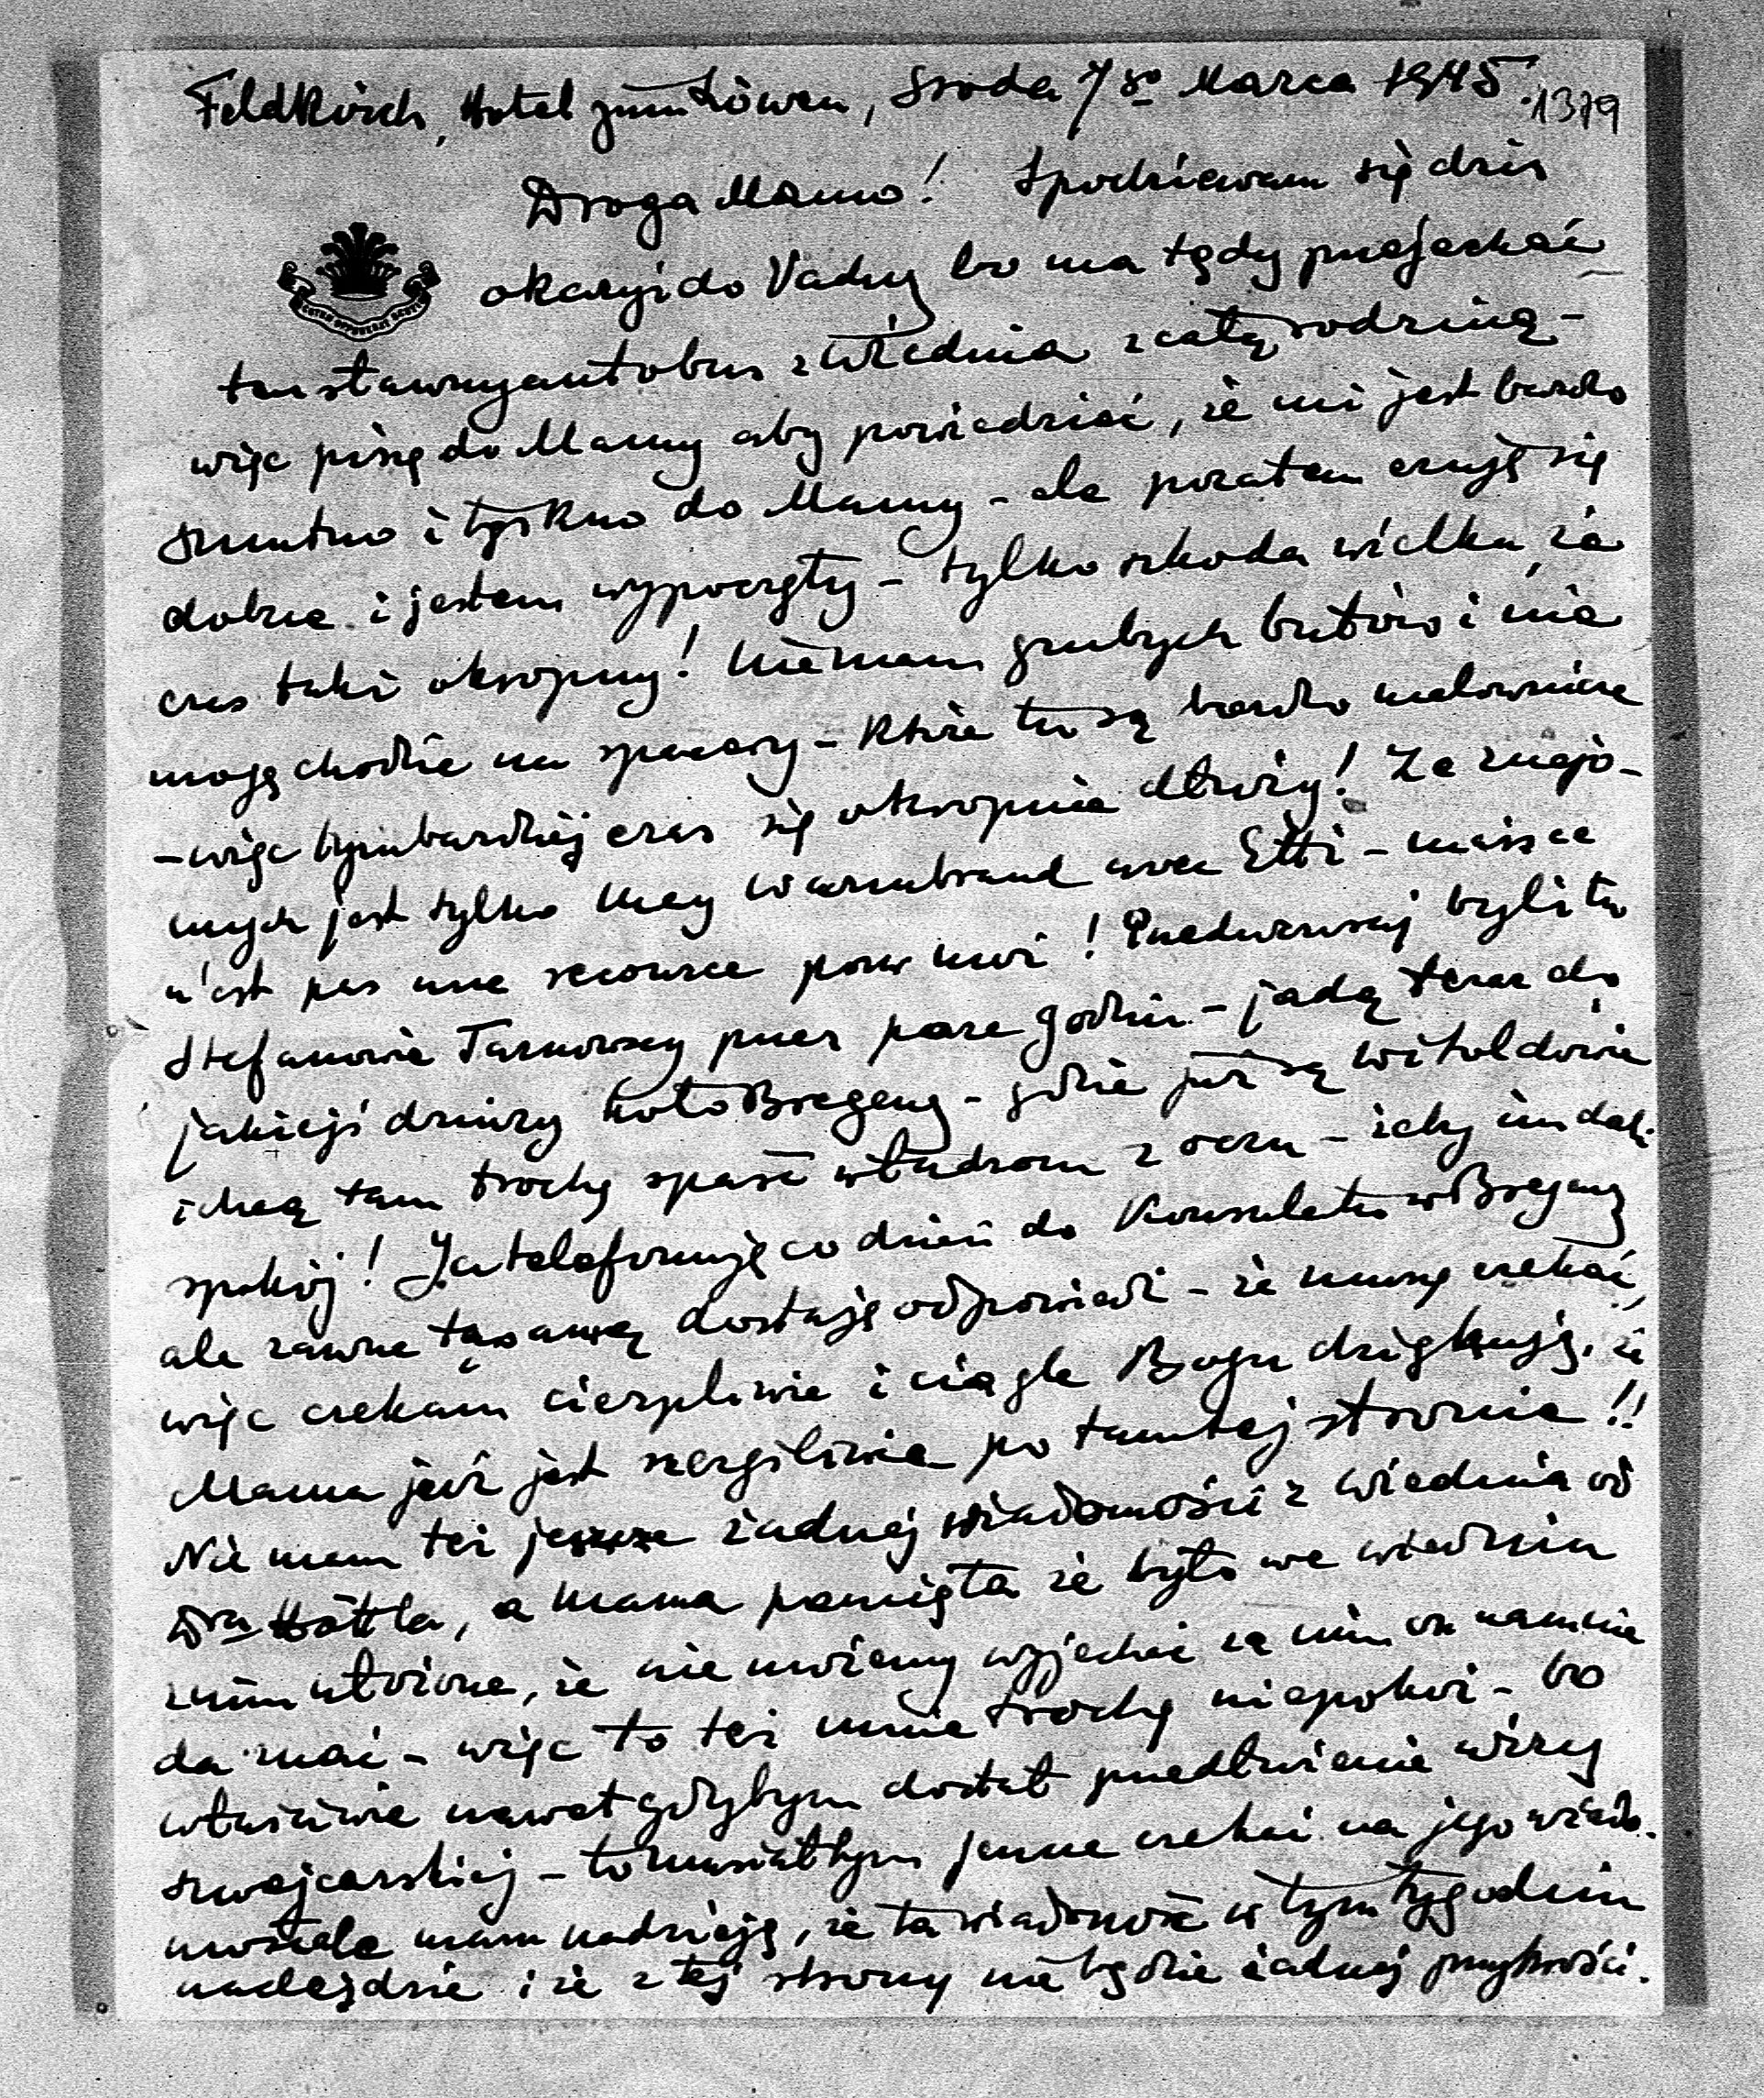 Feldkirch, Hotel zum Löwen, Środa 7go Marca 1945.
1379
Droga Mamo! Spodziewam się dziś
okazyi do Vaduz bo ma tędy przejechać
ten sławny autobus z Wiednia z całą rodziną –
więc piszę do Mamy aby powiedzieć, że mi jest bardzo
smutno i tęskno do Mamy – ale pozatem czuję się
dobrze i jestem wypoczęty – tylko szkoda wielka, że
czas taki okropny! Nie mam grubych butów i nie
mogę chodzić na spacery – które tu są bardzo malownicze
– więc tymbardziej czas się okropnie dłuży! Ze znajo-
mych jest tylko May Wurmbrand avec Etti – mais ce
n'est pas une recource pour moi! Przedwczoraj byli tu
Stefanowie Tarnowscy przez parę godzin – jadą teraz do
jakiejś dziury koło Bregenz – gdzie już są Witoldowie
i chcą tam trochę spaść władzom z oczu – żeby im dali
spokój! Ja telefonuję co dzień do Konsulatu w Bregenz
ale zawsze tęsamą dostaję odpowiedź – że muszę czekać,
więc czekam cierpliwie i ciągle Bogu dziękuję, że
Mama już jest szczęśliwie po tamtej stronie!!
Nie mam też jeszcze żadnej wiadomości z Wiednia od
Dra Höttla, a Mama pamięta że było we Wiedniu
z nim ułożone, że nie możemy wyjechać za nim on nam nie
da znać – więc to też mnie trochę niepokoi – bo
właściwie nawet gdybym dostał przedłużenie wizy
szwajcarskiej – to musiałbym jeszcze czekać na jego wiado-
mość ale mam nadzieję, że ta wiadomość w tym tygodniu
nadejdzie i że z tej strony nie będzie żadnej przykrości.